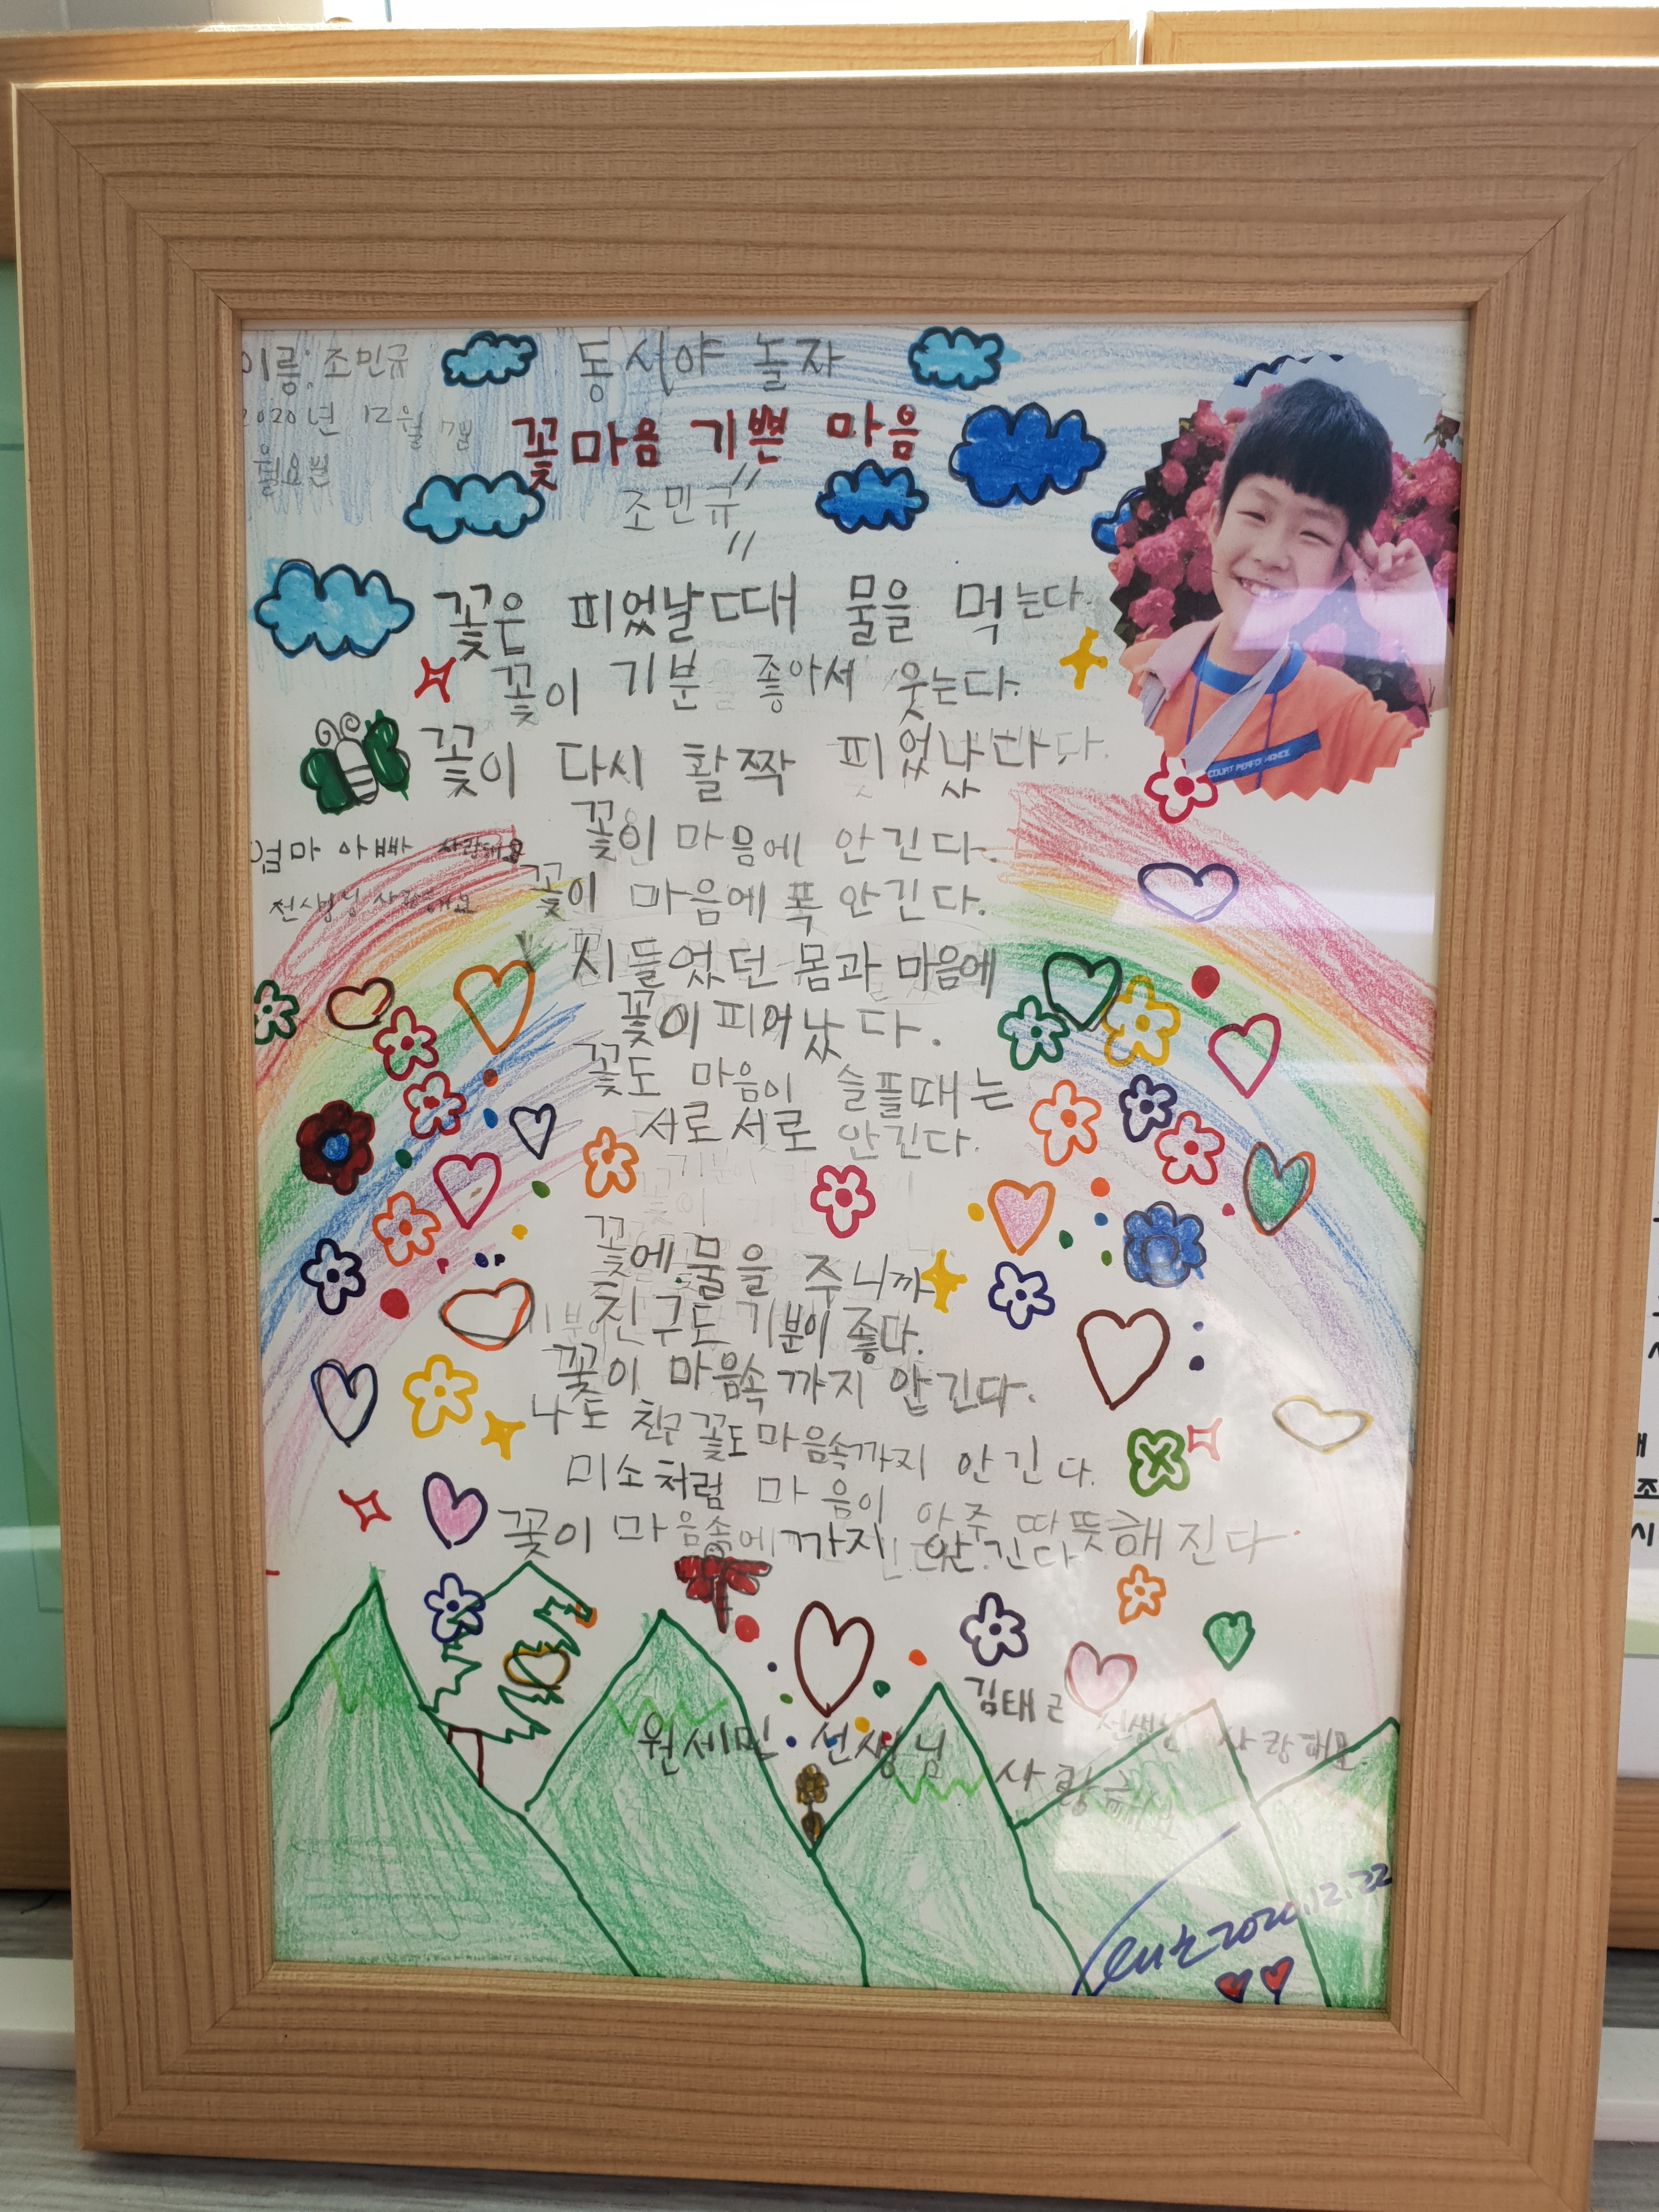 이름: 조민규
동시야 놀자
2020년 12월 7일
월요일
꽃마음 기쁜 마음
조민규
꽃은 피었날때 물을 먹는다.
꽃이 기분 좋아서 웃는다.
꽃이 다시 활짝 피었났다
꽃이 마음에 안긴다.
엄마 아빠 사랑해요
꽃이 마음에 폭 안긴다.
선생님 사랑해요
시들었던 몸과 마음에
꽃이 피어났다.
꽃도 마음이 슬플때는
서로서로 안긴다.
꽃에 물을 주니까
친구도 기분이 좋다.
꽃이 마음속까지 안긴다.
나도 친구 꽃도 마음속까지 안긴다.
미소처럼 마음이 아주 따뜻해진다
꽃이 마음속에까지 안긴다
김태근 선생님 사랑해요.
원세민 선생님 사랑해요
2020.12.22
COURT PERFORMANCE